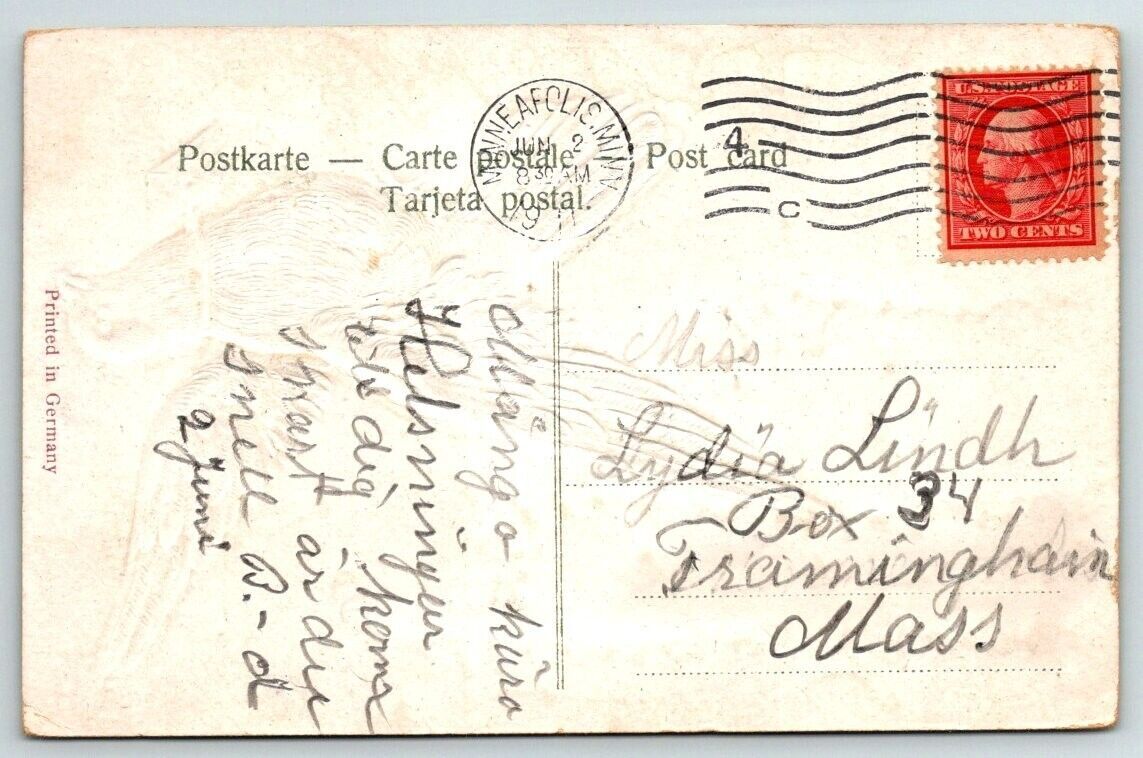 Postkarte — Carte postale Post card
Tarjeta postal.
MINNEAPOLIS, MINN
JUN 2
8 30 AM
1911
4
C
U.S. POSTAGE
TWO CENTS
Printed in Germany
Många kära
Helsningar
dig
är du
B.-d
2 Juni
Miss
Lydia Lindh
Box 34
Framingham
Mass